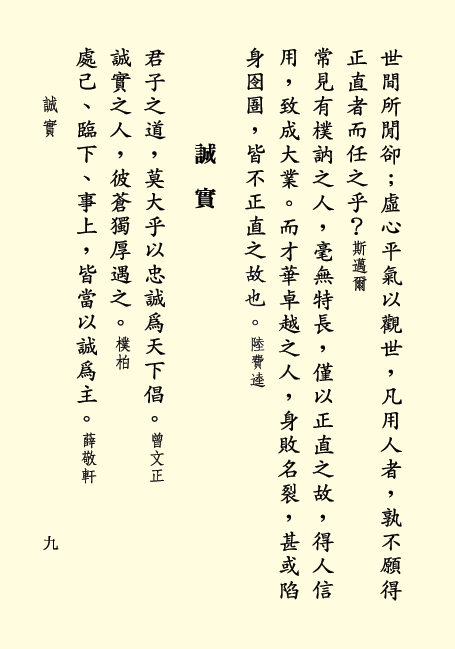 世間所閒卻；虛心平氣以觀世，凡用人者，孰不願得
正直者而任之乎？斯邁爾
常見有樸訥之人，毫無特長，僅以正直之故，得人信
用，致成大業。而才華卓越之人，身敗名裂，甚或陷
身囹圄，皆不正直之故也。陸費逵
誠實
君子之道，莫大乎以忠誠爲天下倡。曾文正
誠實之人，彼蒼獨厚遇之。樸柏
處己、臨下、事上，皆當以誠爲主。薛敬軒
誠實
九